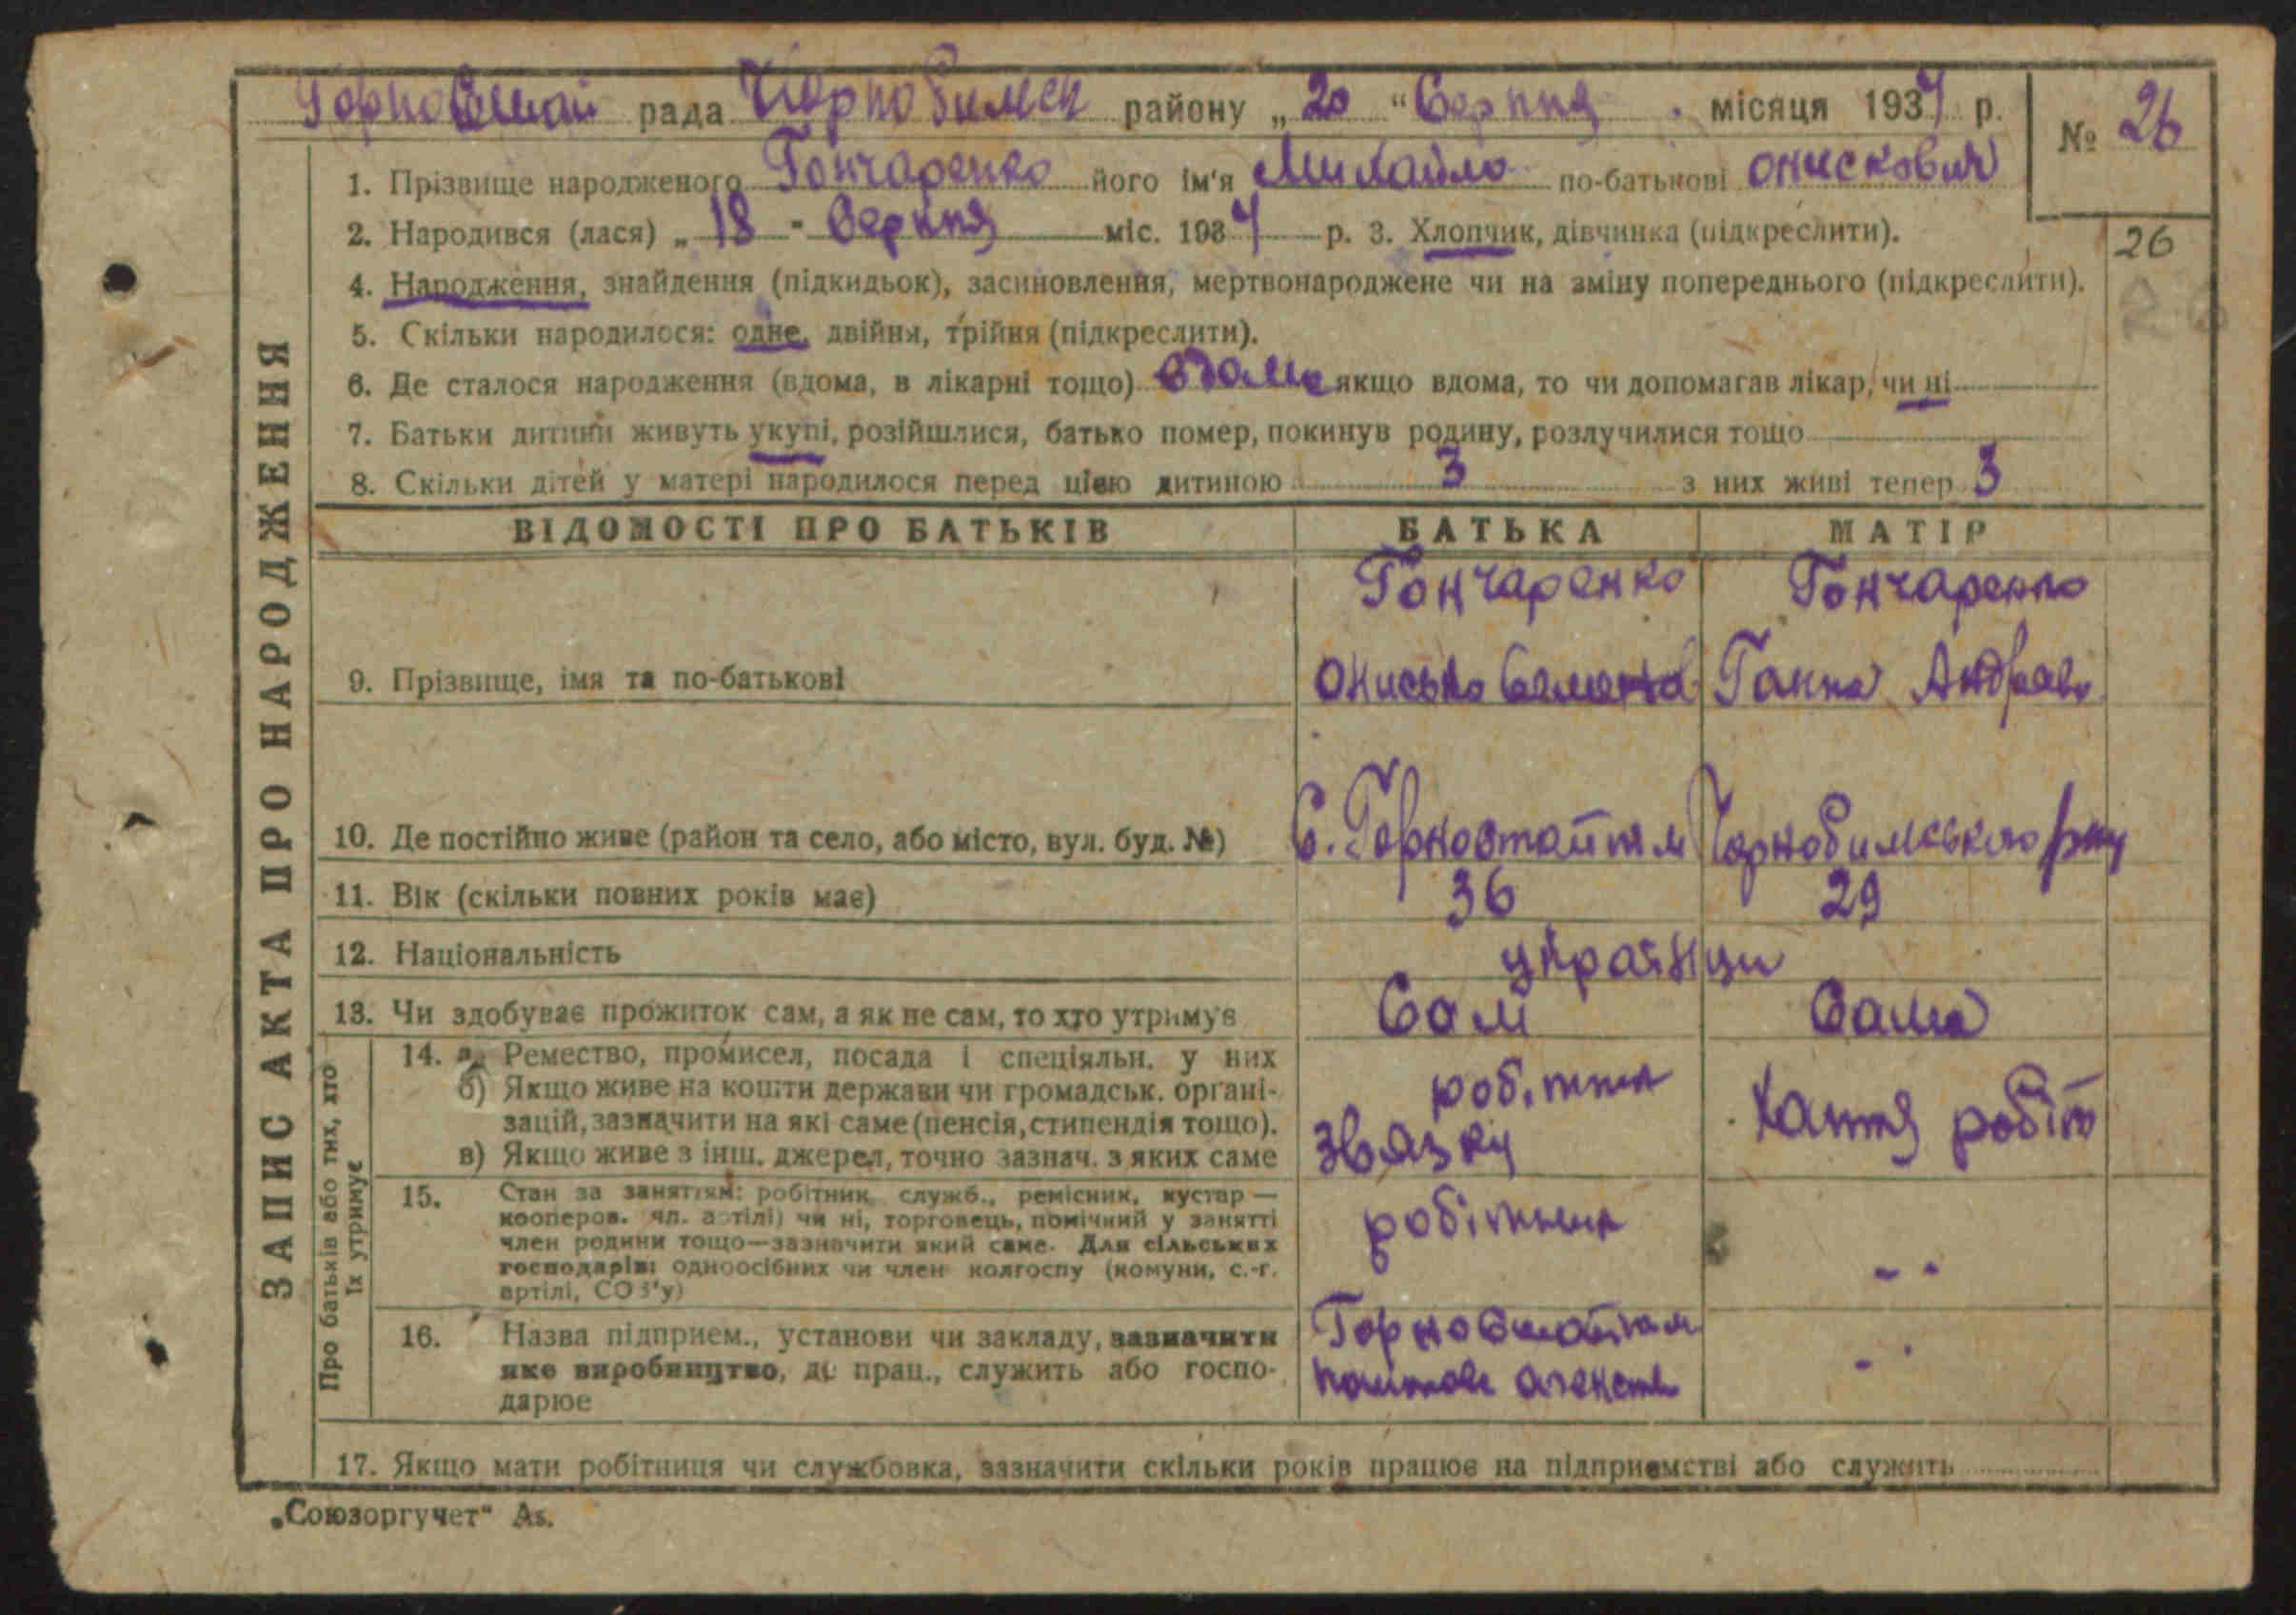 Горностай рада Чорнобильск району „20“ Серпня місяця 1937 р.
№ 26
1. Прізвище народженого Гончаренко його ім'я Михайло по-батькові Онискович
2. Народився (лася) „18 - Серпня міс. 1937 р. 3. Хлопчик, дівчинка (підкреслити).
26
4. Народження, знайдення (підкидьок), засиновлення, мертвонароджене чи на зміну попереднього (підкреслити).
5. Скільки народилося: одне, двійня, трійня (підкреслити).
6. Де сталося народження (вдома, в лікарні тощо) вдома якщо вдома, то чи допомагав лікар, чи ні
7. Батьки дитини живуть укупі, розійшлися, батько помер, покинув родину, розлучилися тощо
8. Скільки дітей у матері народилося перед цією дитиною 3 з них живі тепер 3
ЗАПИС АКТА ПРО НАРОДЖЕННЯ
ВІДОМОСТІ ПРО БАТЬКІВ БАТЬКА МАТІР
Гончаренко Гончаренко
9. Прізвище, імя та по-батькові Онисько Семенов Ганна Андреев
10. Де постійно живе (район та село, або місто, вул. буд. №) С. Горностайпол Чорнобильського р-ну
11. Вік (скільки повних років має) 36 29
12. Національність українци
13. Чи здобуває прожиток сам, а як не сам, то хто утримує Сам Сама
Про батьків або тих, хто їх утримує
14. а) Ремество, промисел, посада і спеціяльн. у них
б) Якщо живе на кошти держави чи громадськ. органі-
зацій, зазначити на які саме (пенсія, стипендія тощо).
в) Якщо живе з інш. джерел, точно зазнач. з яких саме
робітник
Звязку
Хатня робіт
15. Стан за заняттям: робітник, служб., ремісник, кустар —
кооперов. чл. артілі) чи ні, торговець, помічний у занятті
член родини тощо—зазначити який саме. Для сільських
господарів: одноосібних чи член колгоспу (комуни, с.-г.
артілі, СОЗ'у)
робітник
- -
16. Назва підприєм., установи чи закладу, зазначити
яке виробництво, де прац., служить або госпо-
дарює
Горностайпол
поштове агенств
- -
17. Якщо мати робітниця чи службовка, зазначити скільки років працює на підприємстві або служить
„Союзоргучет“ Аз.